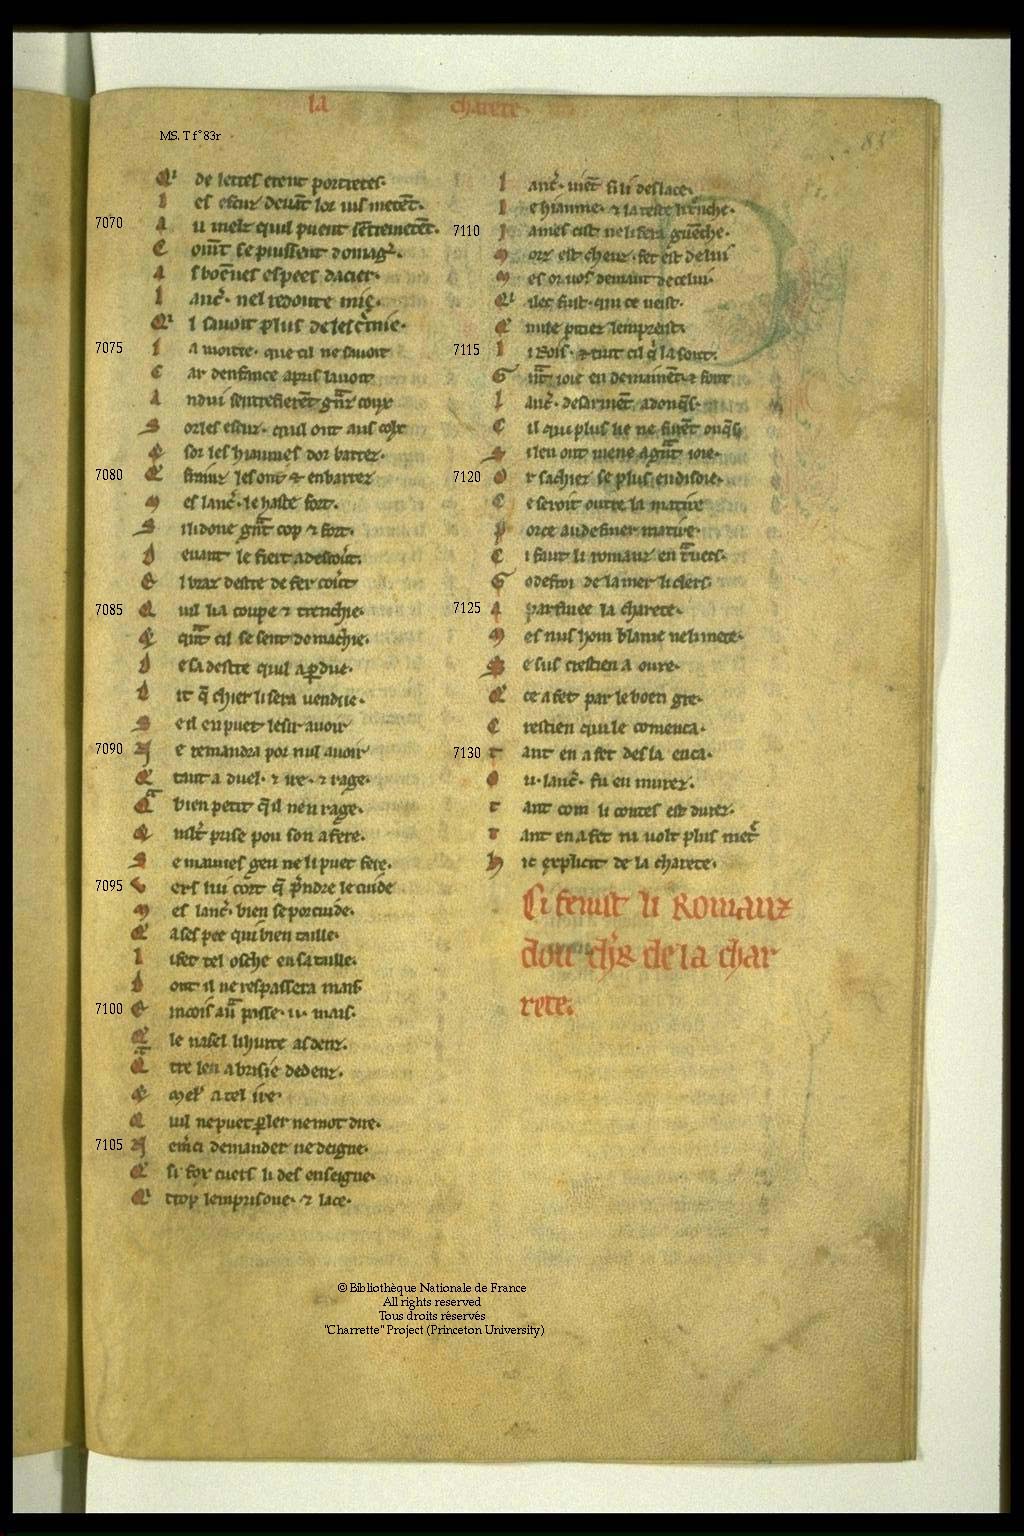 la charete.
MS. T f°83r
85
Qi de lettes erent portretes.
l es escuz deuãt lor uis metẽt.
7070 a u melz quil puent sẽtremetẽt.
C omt̃ se piussent domagr̃.
A s boẽnes espees dacier.
l anc̃. nel redoute mie.
Qi l sauoit plus de lescr̃mie.
7075 l a moitie. que cil ne sauoit
C ar denfance apris lauoit
A ndui sentrefierẽt grãz coux
S or les escuz. quil ont aus colx
E sor les hiaumes dor barrez.
7080 Q frainz les ont & enbarrez
M es lanc̃. le haste fort.
S ili done grãt cop & fort.
D euant le fiert a descou̾t.
E l braz destre de fer cou̾t
7085 Q uil li a coupe & trenchie.
E quãt cil se sent domachie.
D e sa destre quil a p̱due.
D it q̃ chier li sera uendue.
S eil en puet lesir auoir
7090 N e remandra por nul auoir
Q tant a duel. & ire. & rage.
Q a bien petit q̃il nen rage.
Q mlt̃ prise pou son afere.
S e mauues geu ne li puet fere.
7095 V ers lui cort q̃ p̃ndre le cuide
M es lanc̃. bien se porcuide.
Q a sespee qui bien taille.
l i fet tel osche en sa taille.
D ont il ne respassera mais
7100 E incois aura passe. ii. mais.
Q le nasel li hurte as denz.
Q tre len a brisie dedenz.
E Mel̃. a tel ire.
Q uil ne puet p̱ler ne mot dire.
7105 N em̃ci demander ne deigne.
Q si fox cuers li des enseigne.
Qi trop lemprisone. & lace.
l anc̃. uiẽt si li deslace.
l e hiaume. & la teste li trẽche.
7110 J ames cist ne li fera guẽche.
M orz est cheuz. fet est de lui
M es or uos demant de celui.
Qi ilec fust. qui ce ueist.
E nule pitiez lempreist.
7115 l i Rois. & tuit cil q̃ la sont.
G rãt ioie en demainẽt & font
l anc̃. desarmẽt adonq̃s.
C il qui plus lie ne furẽt onq̃s
S i len ont mene a grãt ioie.
7120 O r sachiez se plus en disoie.
C e seroit outre la matire
P orce au definer matire.
C i faut li romanz en trauers.
G odefroi de la mer li clers
7125 A parfinee la charete.
M es nus hom blame ne li mete.
S e sus crestien a oure.
Q ce a fet par le boen gre.
C restien qui le comenca.
7130 T ant en a fet des la enca.
O u. lanc̃. fu en murez.
T ant com li contes est durez.
T ant en a fet ni uolt plus met̃
H ic explicit de la charete.
Ci fenist li Romanz
dou ch̃r de la char
rete.
©Bibliothèque Nationale de France
All rights reserved
Tous droits réservés
"Charrette" Project (Princeton University)